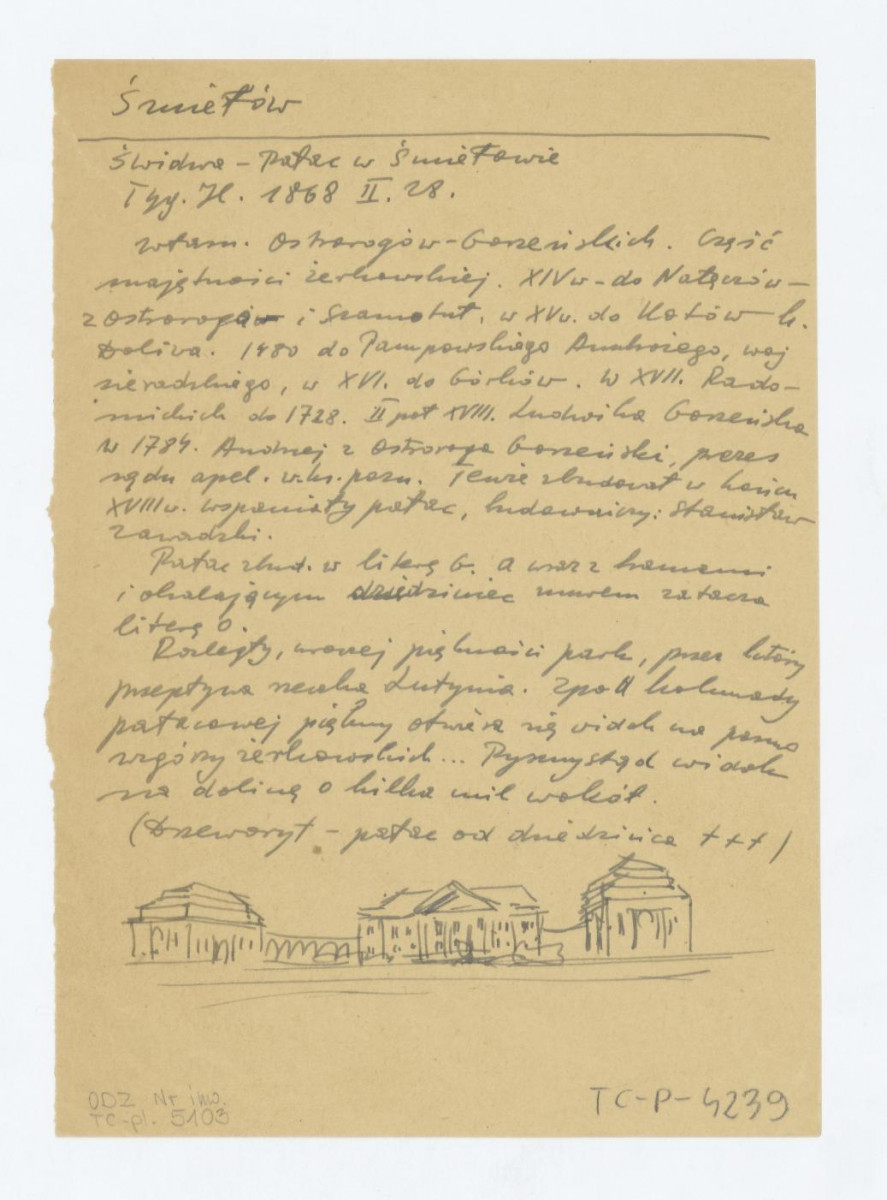 Śmiełów
Świdwa - Pałac w Śmiełowie
Tyg. Il. 1868 II. 28.
własn. Ostrorogów-Gorzeńskich. Część
majętności żerkowskiej. XIV w - do Nałęczów -
z Ostroroga i Szamotuł, w XV w. do Kotów h.
Doliwa. 1480 do Pampowskiego Ambrożego, woj
sieradzkiego, w XVI. do Górków. W XVII. Rado-
mickich do 1728. II poł XVIII. Ludwika Gorzeńska
w 1784. Andrzej z Ostroroga Gorzeński, prezes
sądu apel. w.ks. pozn. Tenże zbudował w końcu
XVIII w. wspaniały pałac, budowniczy: Stanisław
Zawadzki.
Pałac zbud. w literę G. a wraz z bramami
i okalającym dziedziniec murem zatacza
literę O.
Rozległy, uroczej piękności park, przez który
przepływa rzeka Lutynia. Z poza kolumnady
pałacowej piękny otwiera się widok na pasmo
wzgórzy żerkowskich... Przemysław widok
na dolinę o kilka mil wokół.
(Drzeworyt - pałac od dziedzińca +++)
ODZ Nr inw.
TC-pl. 5103
TC-P-4239